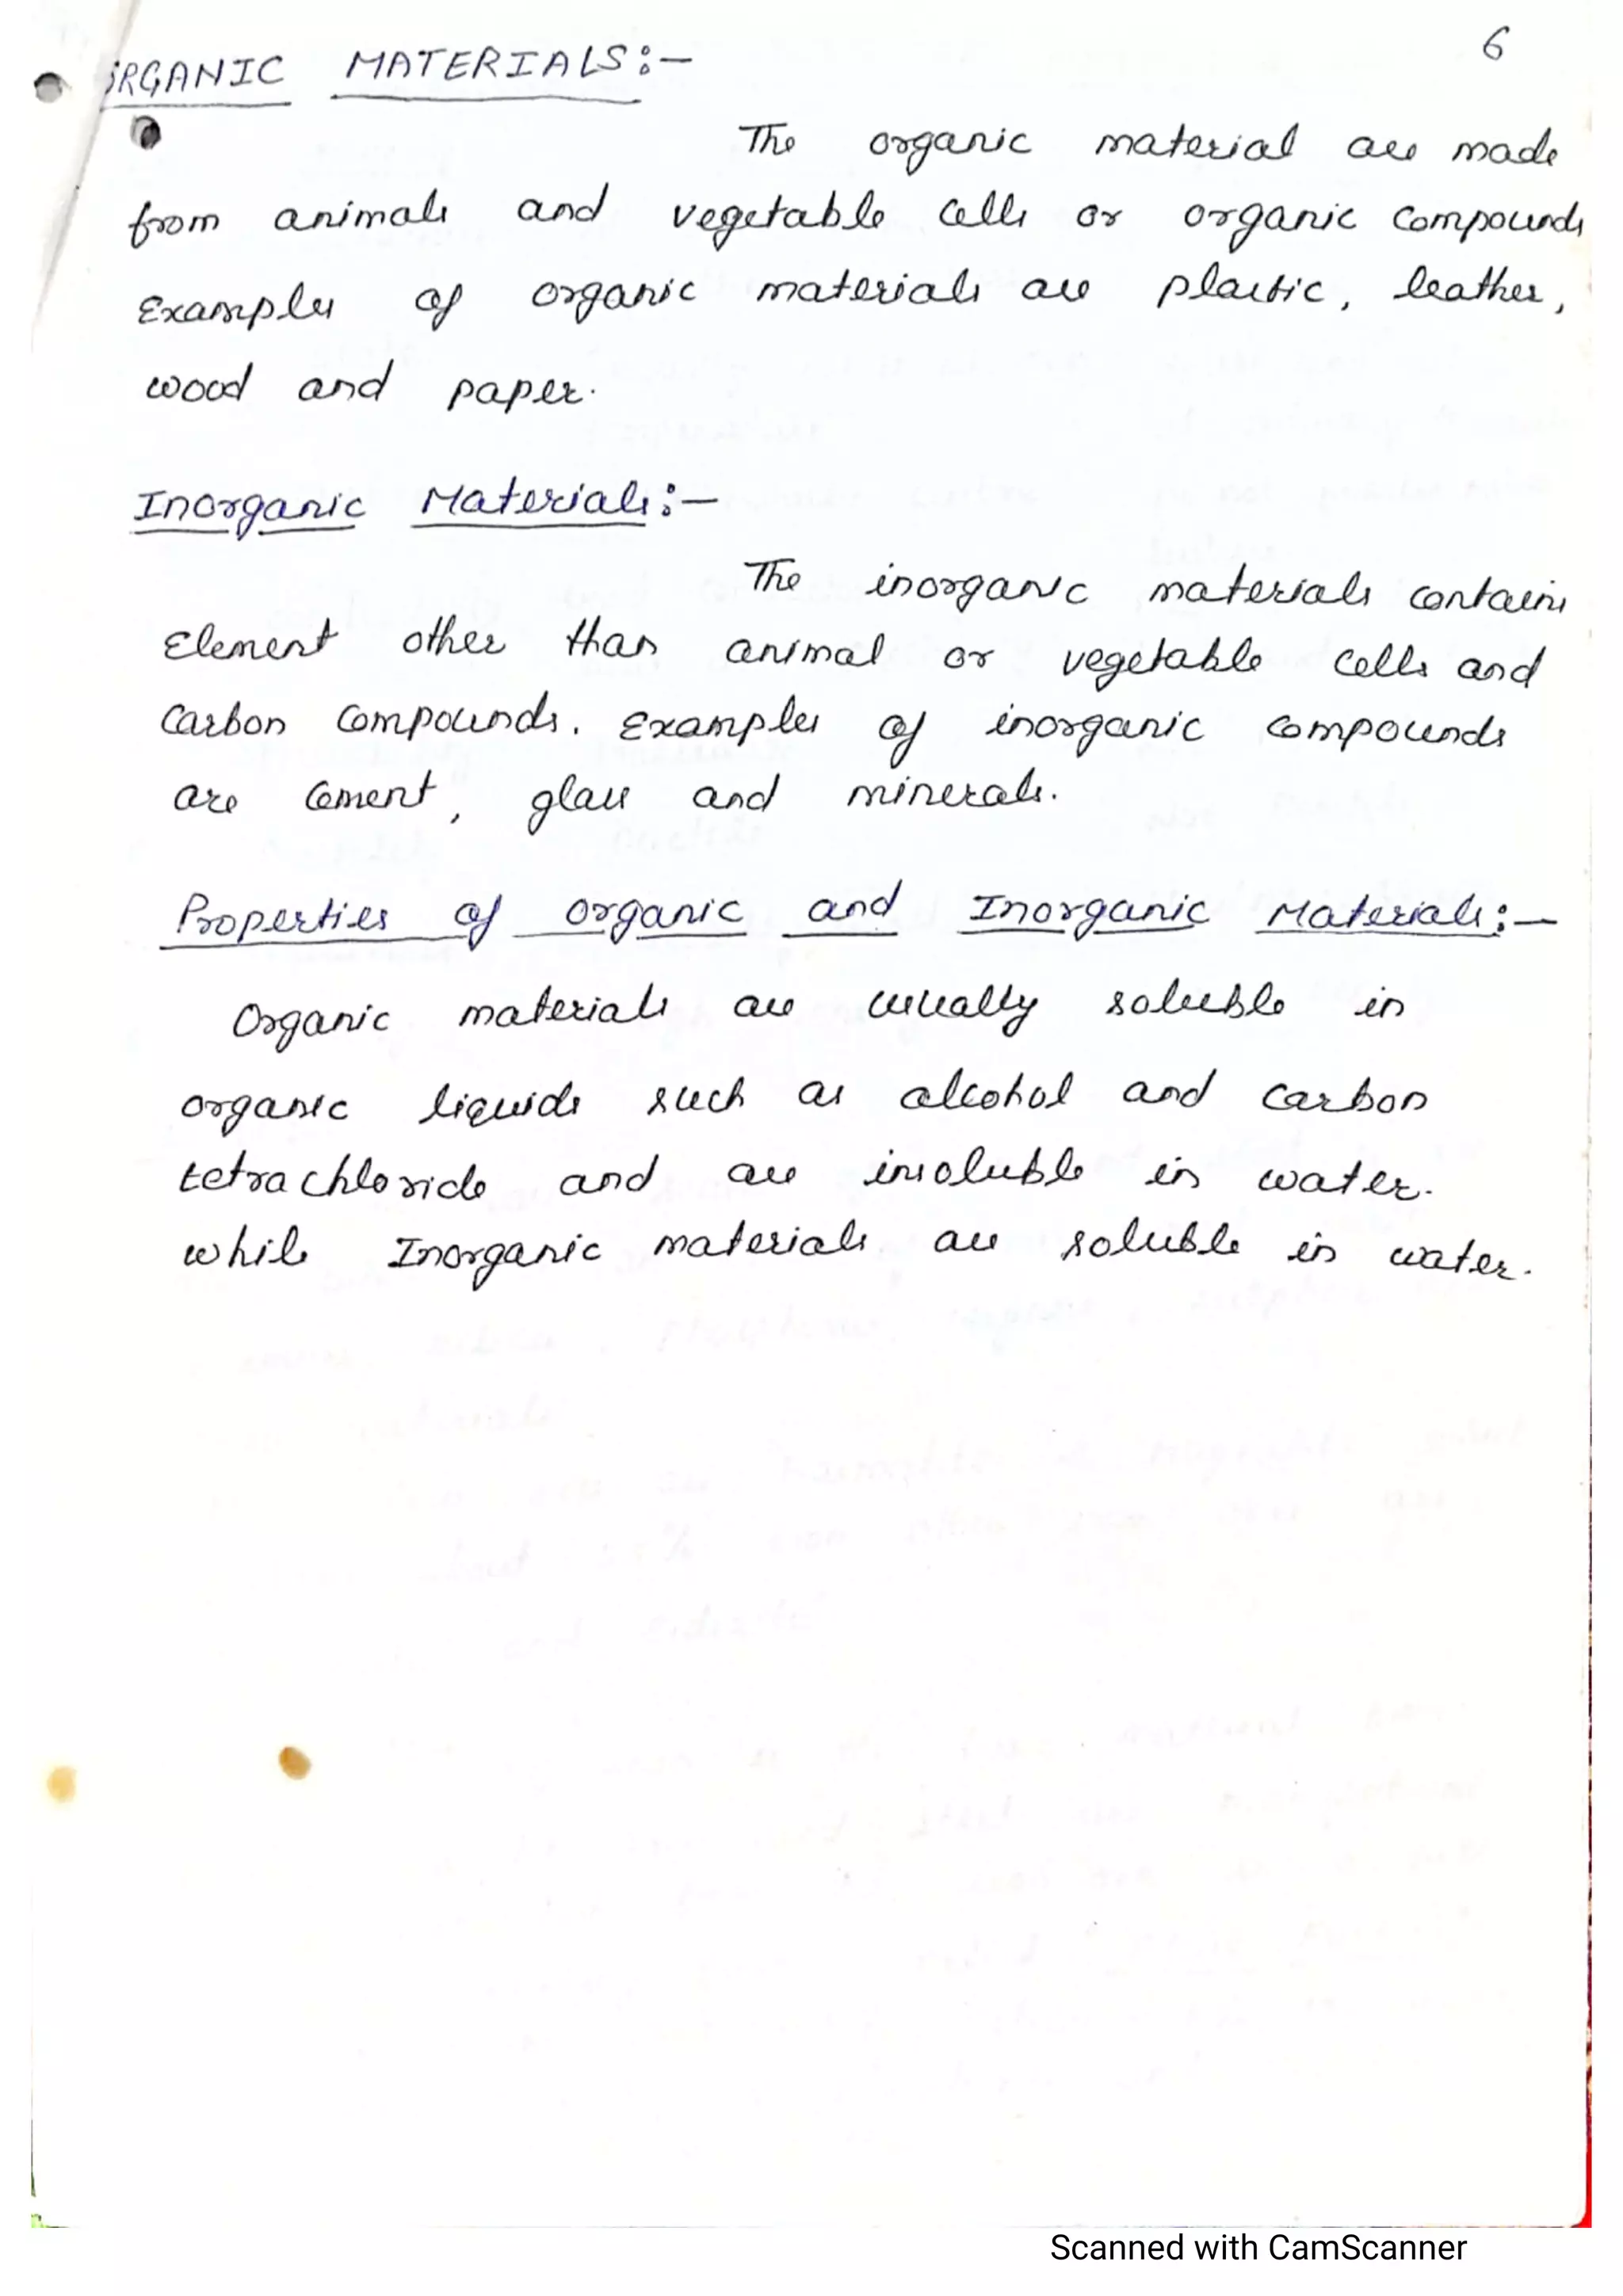 6
ORGANIC MATERIALS:-
The organic material are made
from animals and vegetable cells or organic compounds
Examples of organic materials are plastic, leather,
wood and paper.
Inorganic Materials:-
The inorganic materials contains
Element other than animal or vegetable cells and
Carbon Compounds. Examples of inorganic compounds
are Cement, glass and minerals.
Properties of organic and Inorganic Materials:-
Organic materials are usually soluble in
organic liquids such as alcohol and carbon
tetrachloride and are insoluble in water.
while Inorganic materials are soluble in water.
Scanned with CamScanner